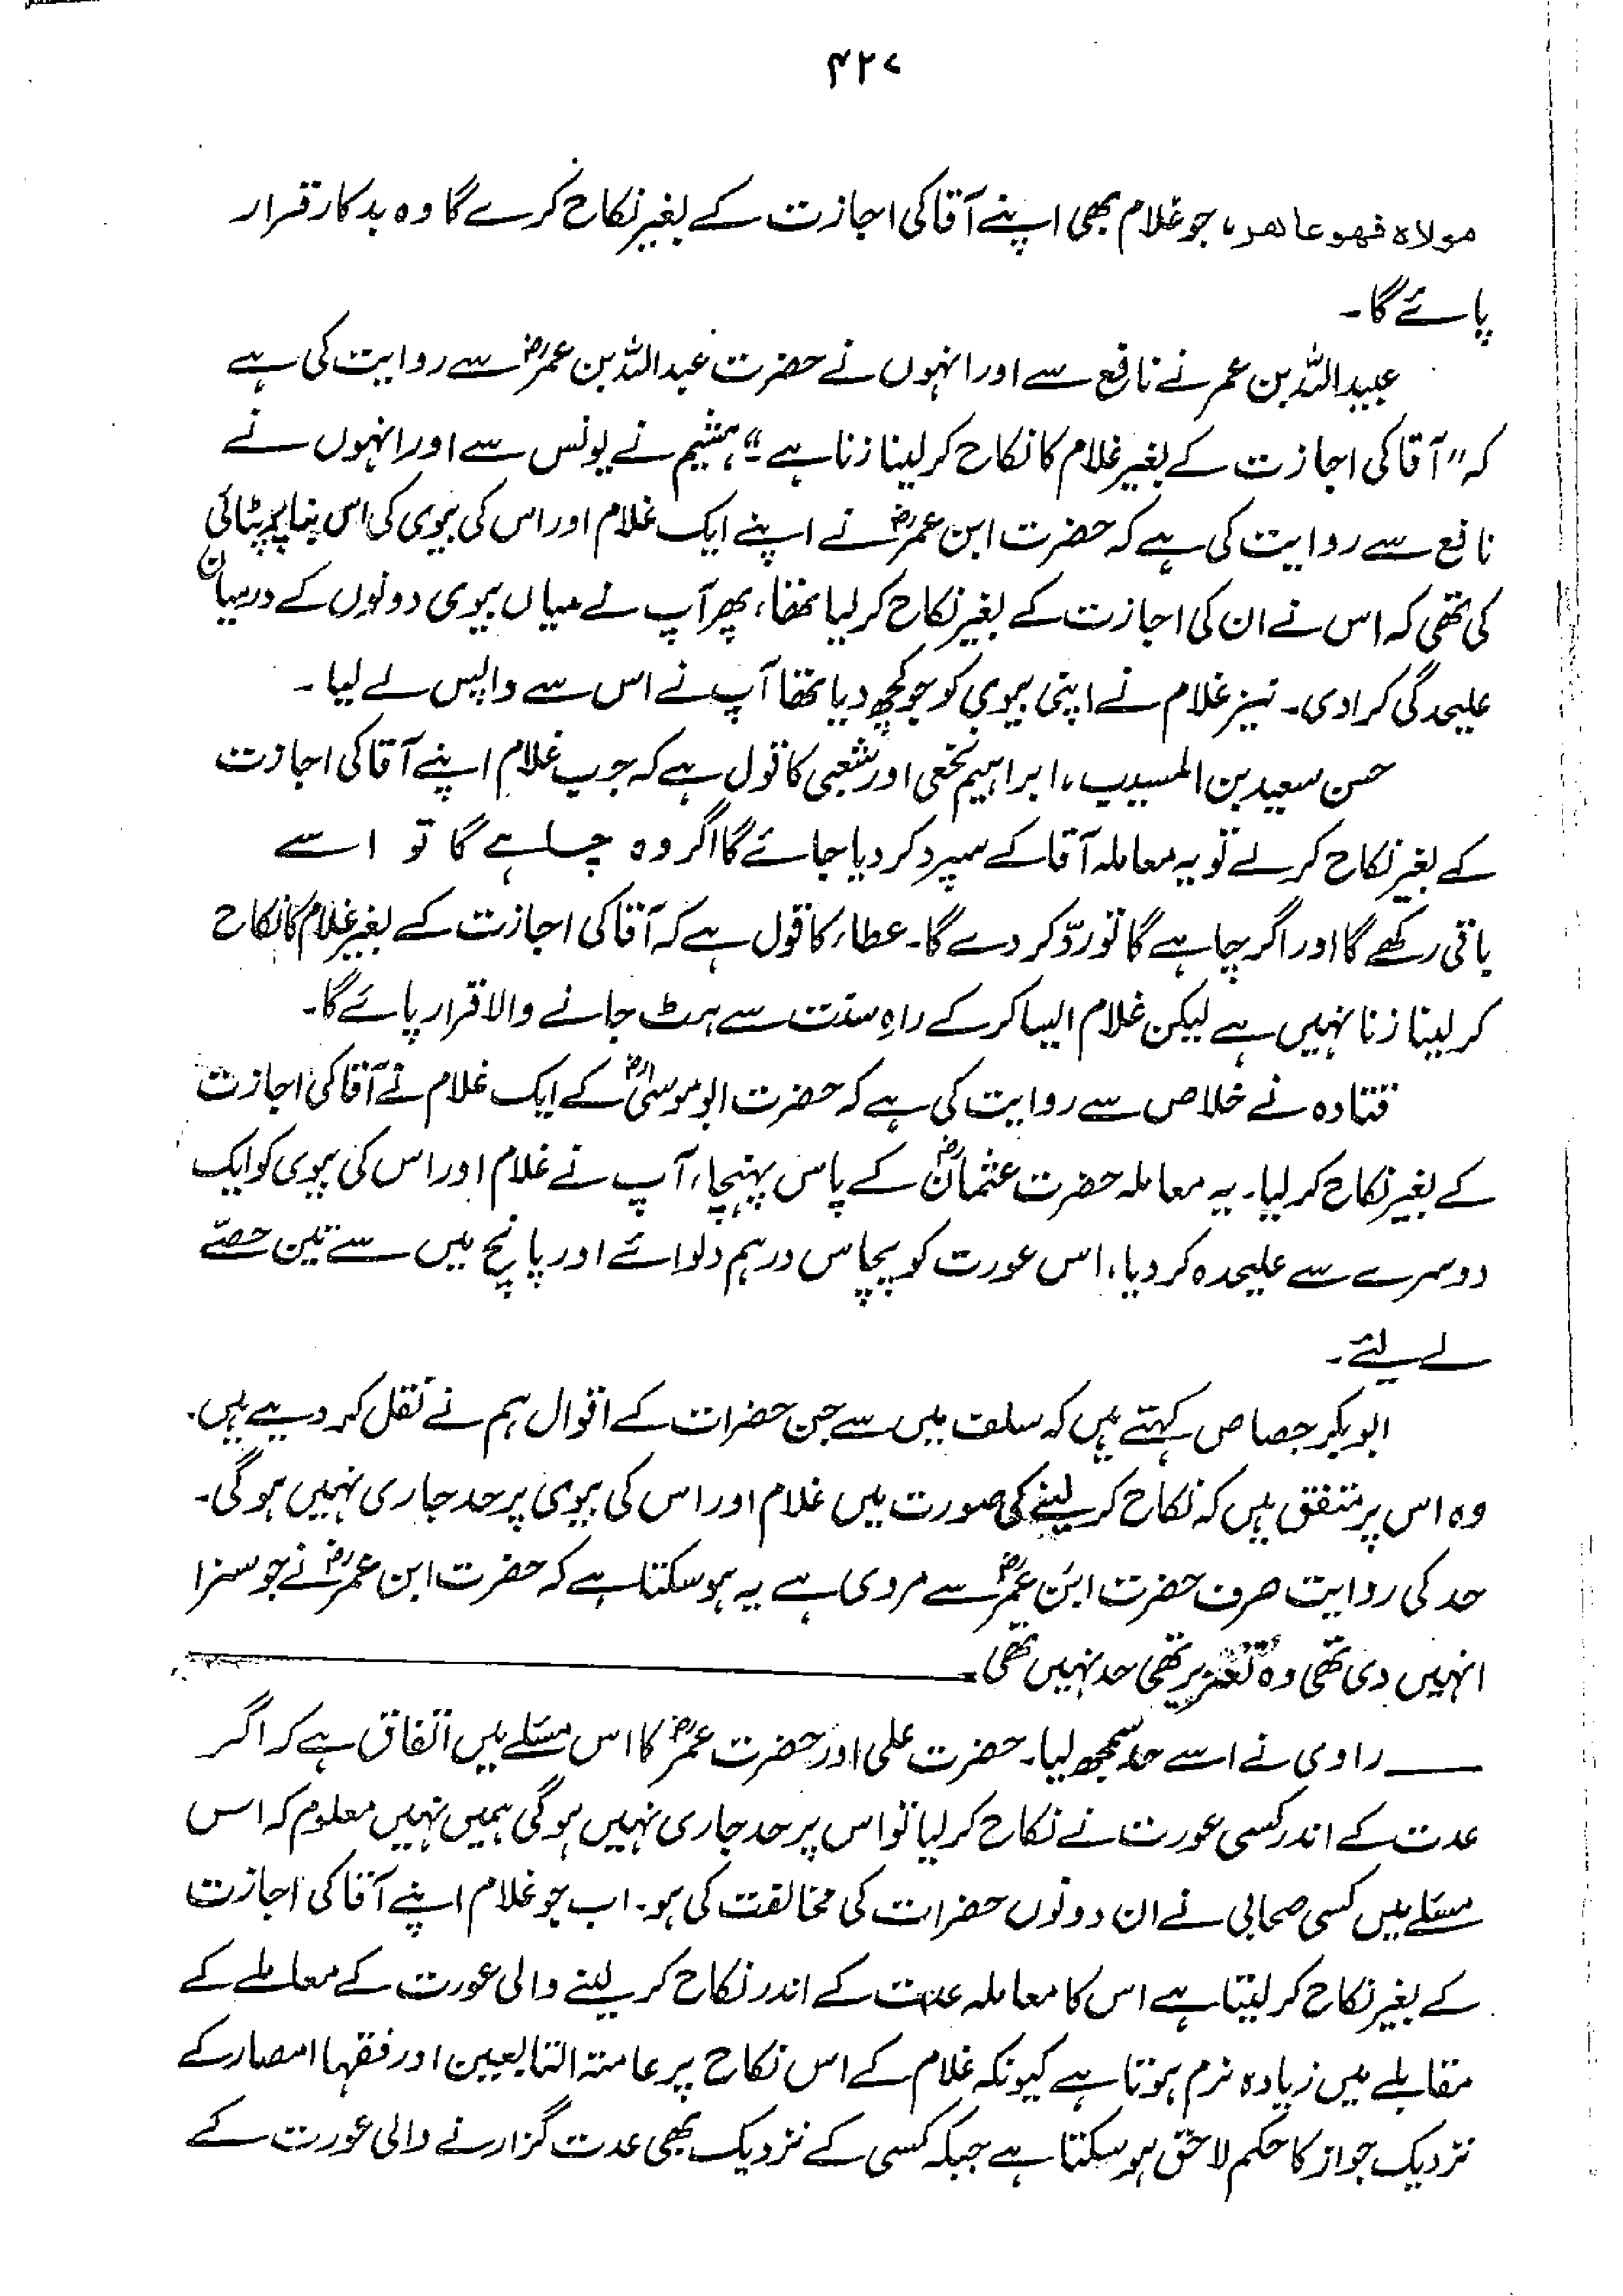 ۴۲۷
مولاہ فہو عاہر، جو غلام بھی اپنے آقا کی اجازت کے بغیر نکاح کرے گا وہ بدکار قرار
پائے گا۔
عبیداللہ بن عمر نے نافع سے اور انہوں نے حضرت عبداللہ بن عمرؓ سے روایت کی ہے
کہ "آقا کی اجازت کے بغیر غلام کا نکاح کر لینا زنا ہے۔" ہشیم نے یونس سے اور انہوں نے
نافع سے روایت کی ہے کہ حضرت ابن عمرؓ نے اپنے ایک غلام اور اس کی بیوی کی اس بنا پر پٹائی
کی تھی کہ اس نے ان کی اجازت کے بغیر نکاح کر لیا تھا، پھر آپ نے میاں بیوی دونوں کے درمیان
علیحدگی کرا دی۔ نیز غلام نے اپنی بیوی کو جو کچھ دیا تھا آپ نے اس سے واپس لے لیا۔
حسن سعید بن المسیب، ابراہیم نخعی اور شعبی کا قول ہے کہ جب غلام اپنے آقا کی اجازت
کے بغیر نکاح کر لے تو یہ معاملہ آقا کے سپرد کر دیا جائے گا اگر وہ چاہے گا تو اسے
باقی رکھے گا اور اگر چاہے گا تو ردّ کر دے گا۔ عطاء کا قول ہے کہ آقا کی اجازت کے بغیر غلام کا نکاح
کر لینا زنا نہیں ہے لیکن غلام ایسا کر کے راہِ سنت سے ہٹ جانے والا قرار پائے گا۔
قتادہ نے خلاص سے روایت کی ہے کہ حضرت ابو موسیٰؓ کے ایک غلام نے آقا کی اجازت
کے بغیر نکاح کر لیا۔ یہ معاملہ حضرت عثمانؓ کے پاس پہنچا، آپ نے غلام اور اس کی بیوی کو ایک
دوسرے سے علیحدہ کر دیا، اس عورت کو پچاس درہم دلوائے اور پانچ میں سے تین حصّے
لے لیئے۔
ابوبکر جصاص کہتے ہیں کہ سلف میں سے جن حضرات کے اقوال ہم نے نقل کر دیے ہیں۔
وہ اس پر متفق ہیں کہ نکاح کر لینے کی صورت میں غلام اور اس کی بیوی پر حد جاری نہیں ہو گی۔
حد کی روایت صرف حضرت ابن عمرؓ سے مروی ہے یہ ہو سکتا ہے کہ حضرت ابن عمرؓ نے جو سزا
انہیں دی تھی وہ تعزیر تھی حد نہیں تھی۔
راوی نے اسے حد سمجھ لیا۔ حضرت علی اور حضرت عمرؓ کا اس مسئلے میں اتفاق ہے کہ اگر
عدت کے اندر کسی عورت نے نکاح کر لیا تو اس پر حد جاری نہیں ہو گی ہمیں نہیں معلوم کہ اس
مسئلے میں کسی صحابی نے ان دونوں حضرات کی مخالفت کی ہو۔ اب جو غلام اپنے آقا کی اجازت
کے بغیر نکاح کر لیتا ہے اس کا معاملہ عدت کے اندر نکاح کر لینے والی عورت کے معاملے کے
مقابلے میں زیادہ نرم ہوتا ہے کیونکہ غلام کے اس نکاح پر عامۃ التابعین اور فقہا امصار کے
نزدیک جواز کا حکم لاحق ہو سکتا ہے جبکہ کسی کے نزدیک بھی عدت گزارنے والی عورت کے